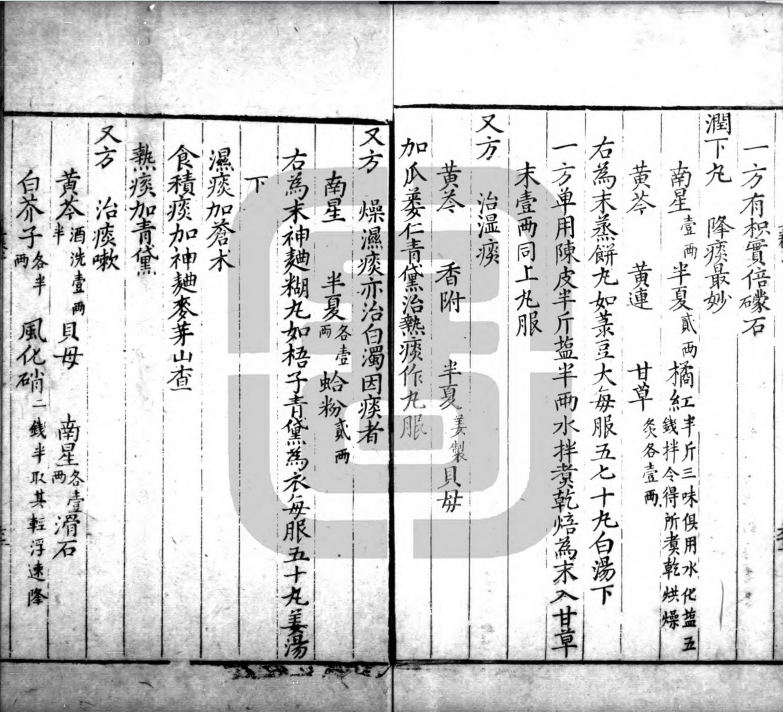 一方有枳實倍礞石
潤下丸　降痰最妙
南星壹兩　半夏貳兩　橘紅半斤三味俱用水化盐五錢拌令得所煮乾烘燥
黄芩　黄連　甘草炙各壹兩
右為末蒸餅丸如菉豆大每服五七十丸白湯下
一方单用陳皮半斤盐半兩水拌煮乾焙為末入甘草
末壹兩同上丸服
又方　治湿痰
黄芩　香附　半夏姜製　貝母
加瓜蔞仁青黛治熱痰作丸服
又方　燥濕痰亦治白濁因痰者
南星　半夏各壹兩　蛤粉貳兩
右為末神麯糊丸如梧子青黛為衣每服五十丸姜湯
下
濕痰加蒼术
食積痰加神麯麥芽山查
熱痰加青黛
又方　治痰嗽
黄芩酒洗壹兩半　貝母　南星各壹兩　滑石
白芥子各半兩　風化硝二錢半取其輕浮速降